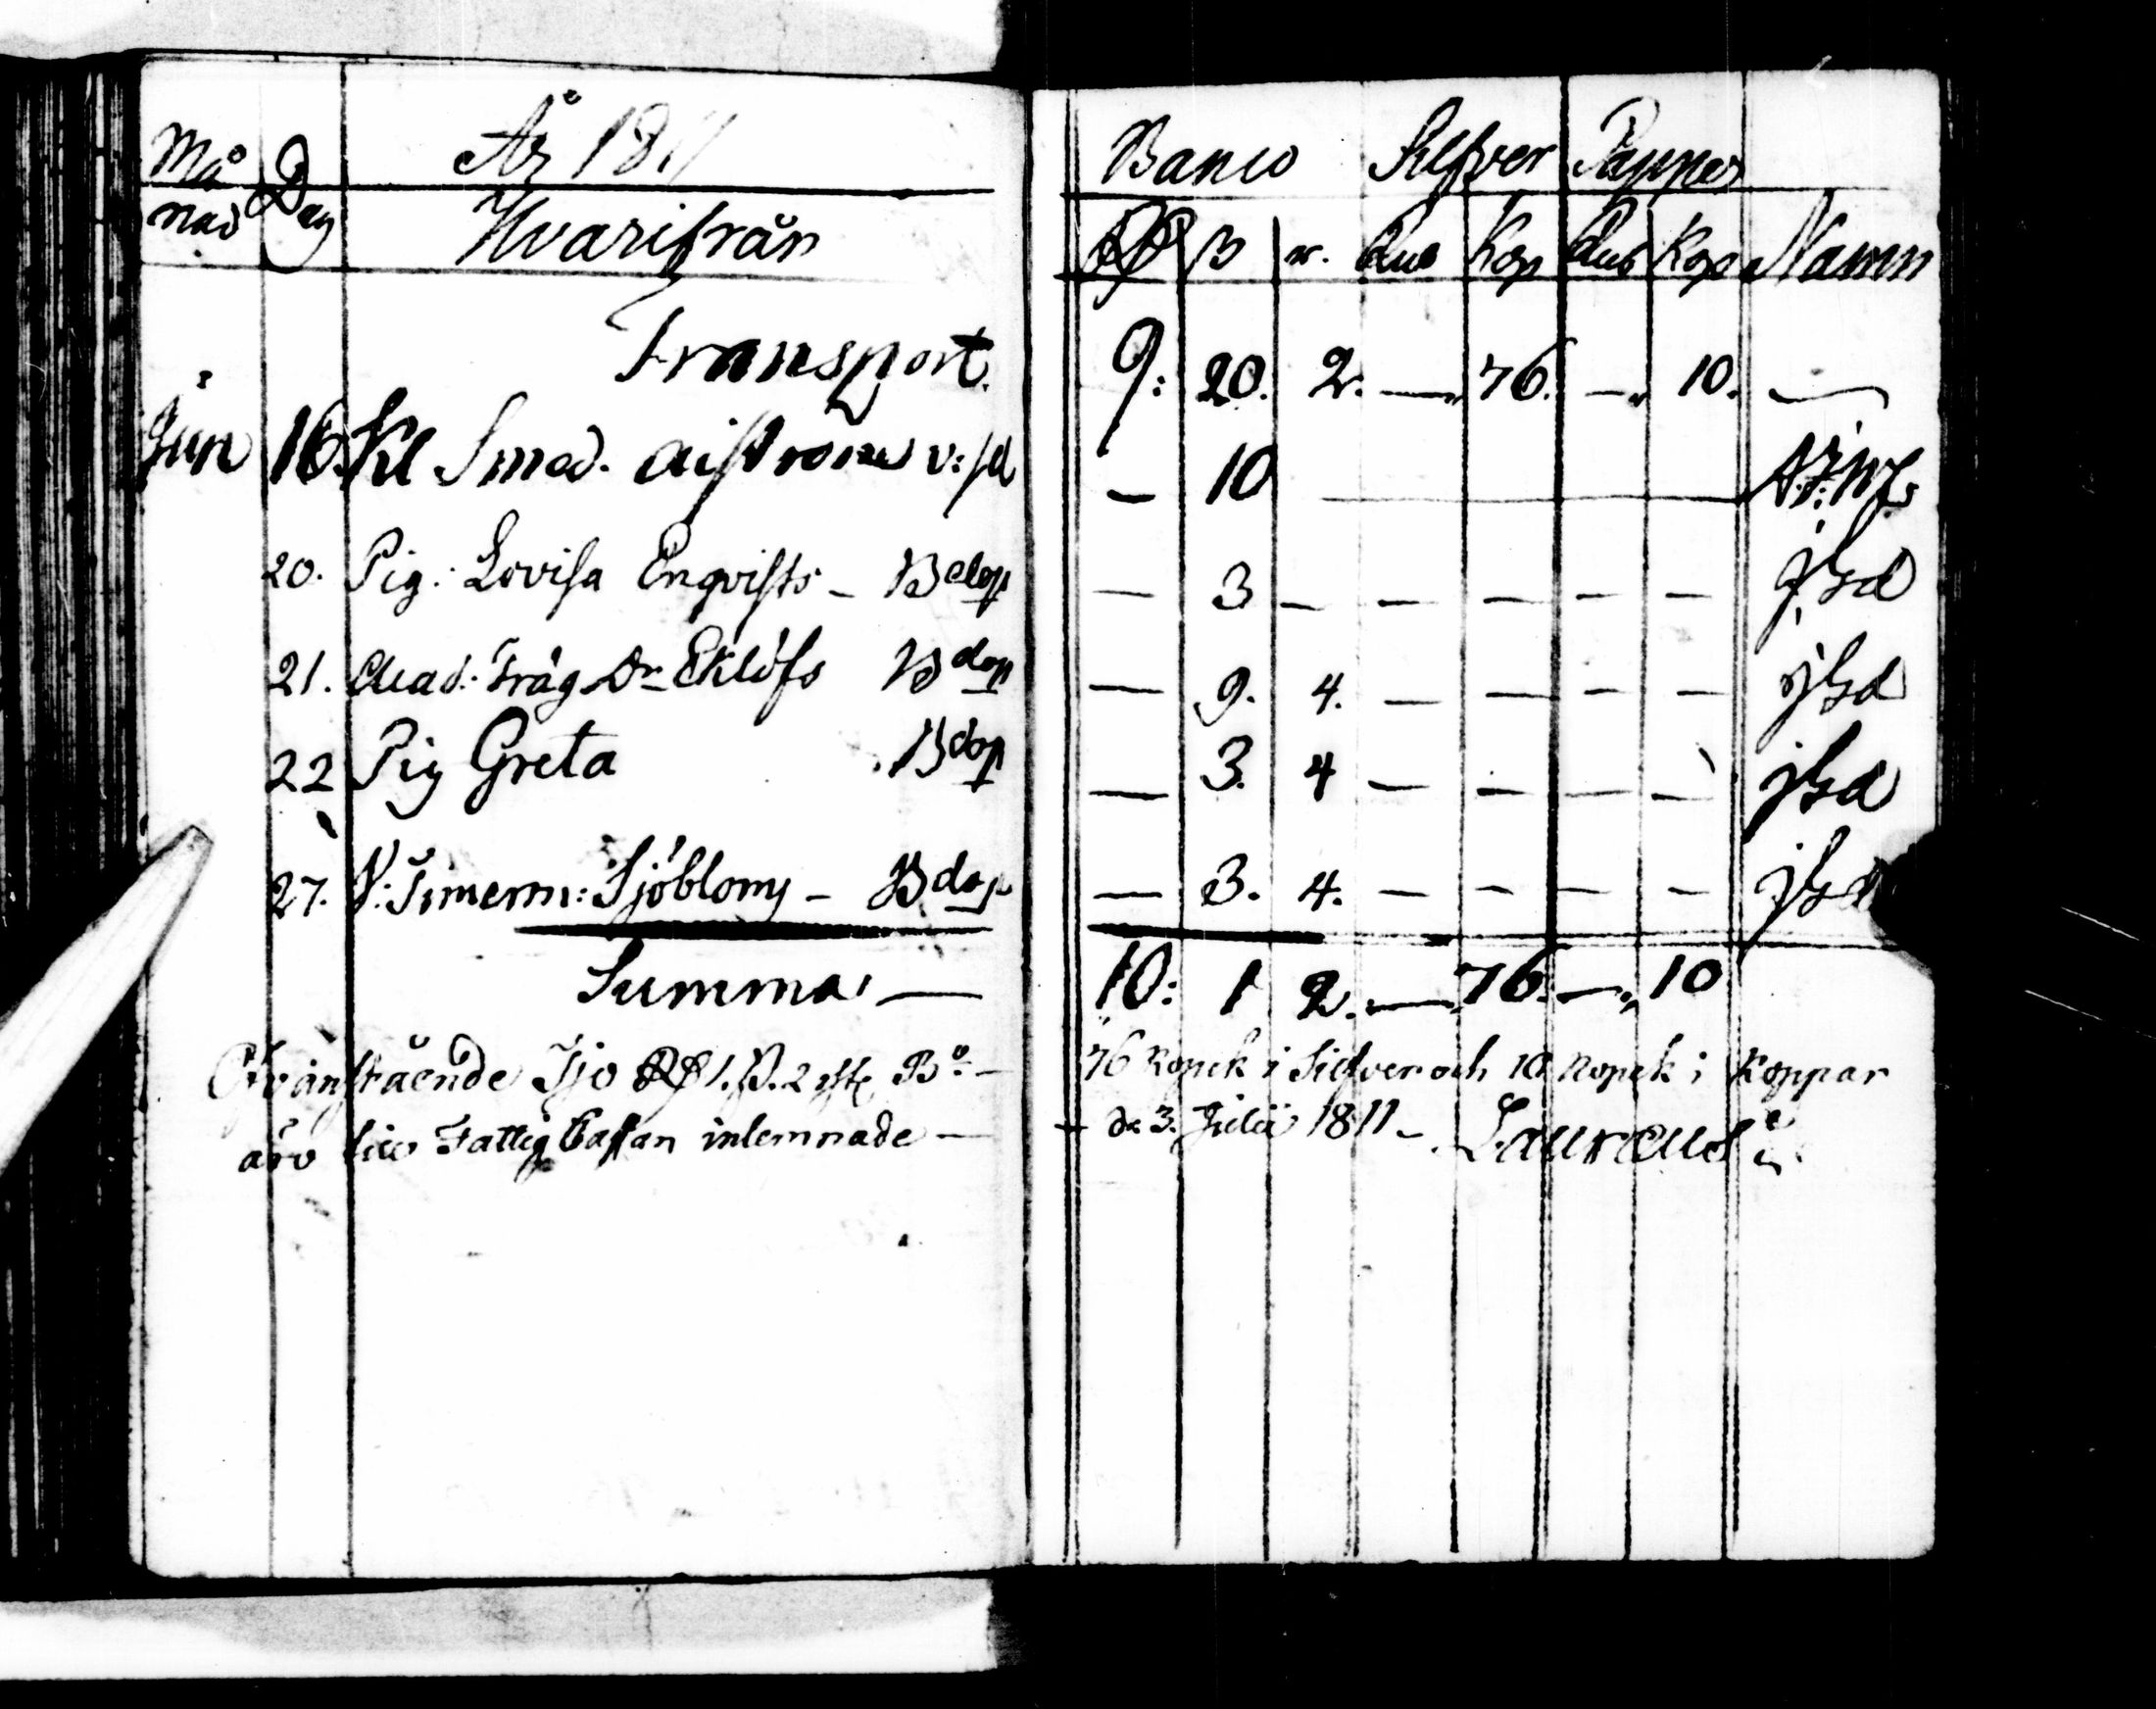 Må Dag År 1811 Banco Silfver Papper
nad Hvarifrån Rd ß r. Rub Kop Rub Kop Namn
Transport. 9: 20. 2. — 76. — 10. —
Jun 16 Kl Smed. v: sd — 10
20. Pig: Lovisa Enqvists – B dop — 3 — — — — — JGd
21. Mad: Träg Dr Eklöfs B dop — 9. 4. — — — — JGd
22 Pig Greta B dop — 3. 4 — — — — JGd
27. V: Timerm: Sjöbloms – B dop — 3. 4. — — — — JGd
Summa — 10: 1 2. — 76. — 10
Ofvanstående Tjo Rd 1. ß. 2 rst Bo – 76 Kopek i Silfver och 10 Kopek i Koppar
äro til Fattig Cassan inlemnade — d. 3. Julii 1811 –